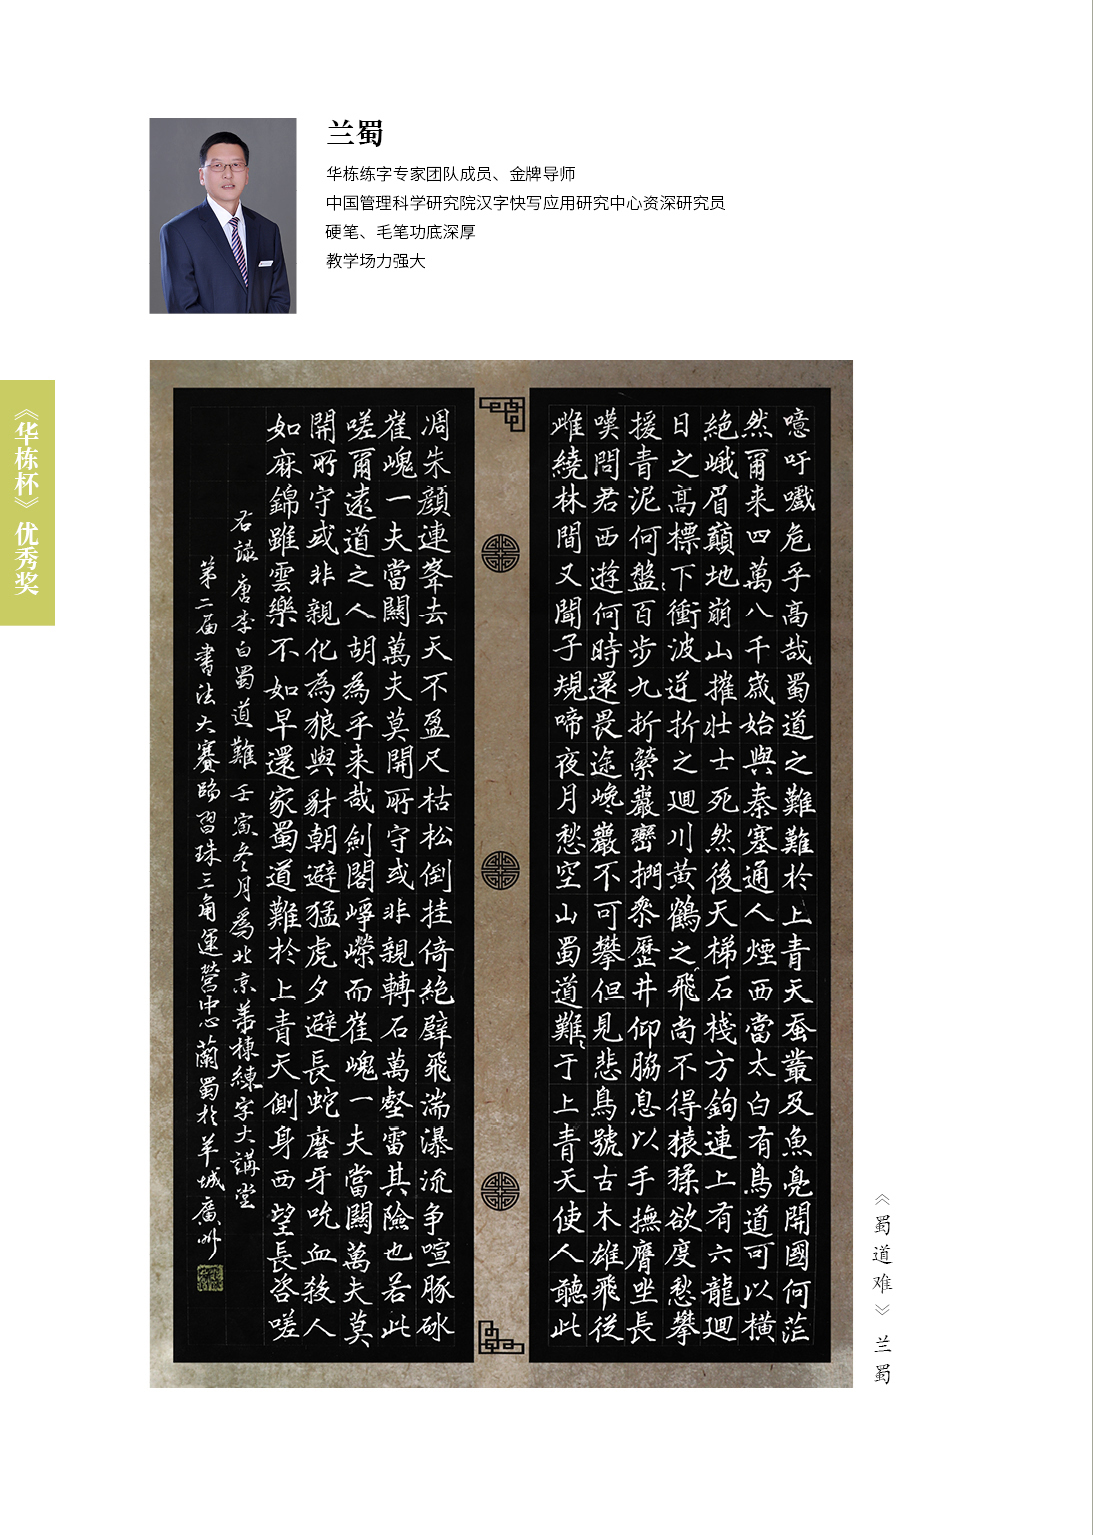 兰蜀
华栋练字专家团队成员、金牌导师
中国管理科学研究院汉字快写应用研究中心资深研究员
硬笔、毛笔功底深厚
教学场力强大
《华栋杯》优秀奖
噫吁嚱危乎高哉蜀道之難難於上青天蚕叢及魚鳧開國何茫
然爾来四萬八千嵗始與秦塞通人煙西當太白有鳥道可以横
絶峨眉巔地崩山摧壮士死然後天梯石棧方鉤連上有六龍廻
日之高標下衝波逆折之廻川黄鶴之飛尚不得猿猱欲度愁攀
援青泥何盤百步九折縈巖巒捫叅歷井仰脇息以手撫膺坐長
嘆問君西遊何時還畏途巉巖不可攀但見悲鳥號古木雄飛従
雌繞林間又聞子規啼夜月愁空山蜀道難于上青天使人聽此
凋朱顔連峯去天不盈尺枯松倒挂倚絶壁飛湍瀑流争喧豗砯
崔嵬一夫當關萬夫莫開所守或非親轉石萬壑雷其險也若此
嗟爾遠道之人胡為乎来哉劍閣崢嶸而崔嵬一夫當關萬夫莫
開所守或非親化為狼與豺朝避猛虎夕避長蛇磨牙吮血殺人
如麻錦雖雲樂不如早還家蜀道難於上青天側身西望長咨嗟
右録唐李白蜀道難壬寅冬月爲北京華棟練字大講堂
第二届書法大賽臨習珠三角運營中心蘭蜀於羊城廣州
《蜀道难》兰蜀